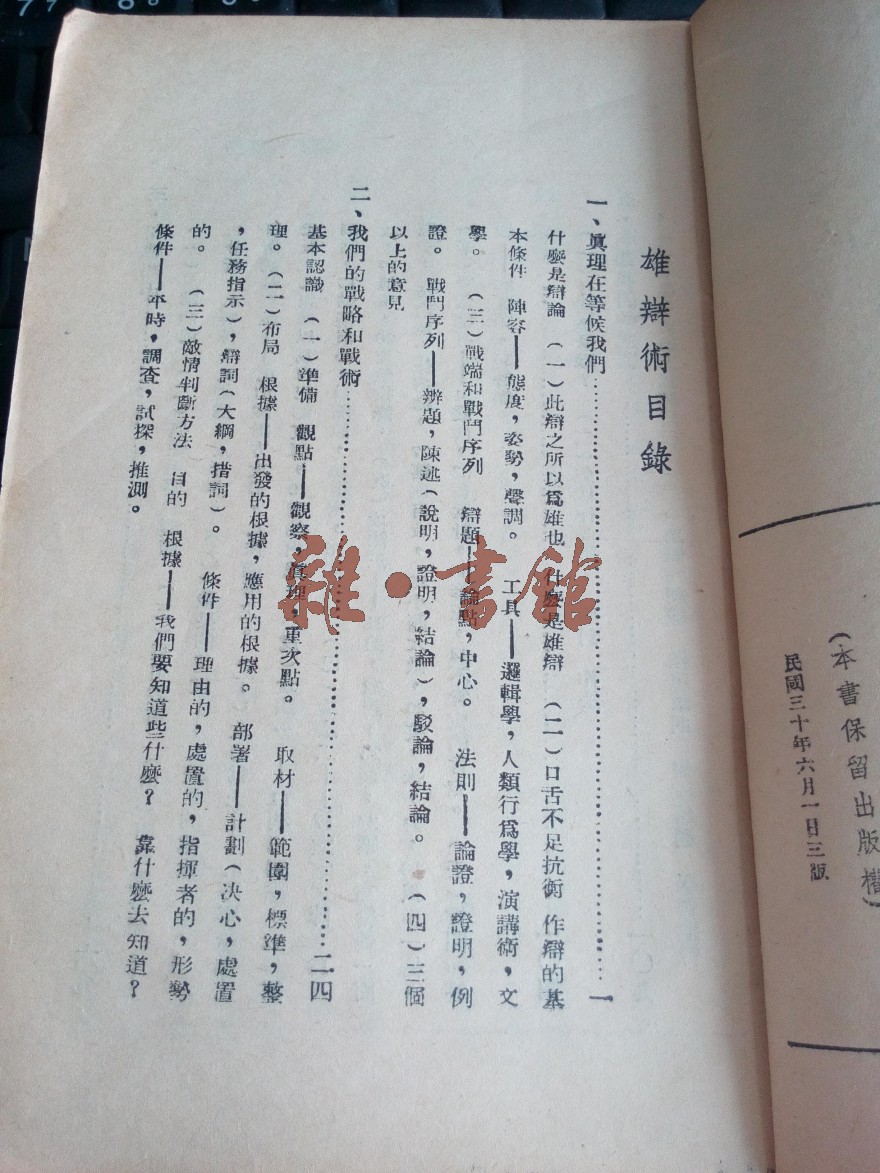 (本書保留出版權)
民國三十年六月一日三版
雄辯術目錄
一、眞理在等候我們……一
什麼是辯論 (一)此辯之所以爲雄也 什麼是雄辯 (二)口舌不足抗衡 作辯的基
本條件 陣容——態度,姿勢,聲調。 工具——邏輯學,人類行爲學,演講術,文
學。 (三)戰端和戰鬥序列 辯題——論點,中心。 法則——論證,證明,例
證。 戰鬥序列——辨題,陳述(說明,證明,結論),駁論,結論。 (四)三個
以上的意見
二、我們的戰略和戰術……二四
基本認識 (一)準備 觀點——觀察,眞理,重次點。 取材——範圍,標準,整
理。 (二)布局 根據——出發的根據,應用的根據。 部署——計劃(決心,處置
,任務指示),辯詞(大綱,措詞)。 條件——理由的,處置的,指揮者的,形勢
的。 (三)敵情判斷方法 目的 根據——我們要知道些什麼? 靠什麼去知道?
條件——平時,調查,試探,推測。
雜·書館